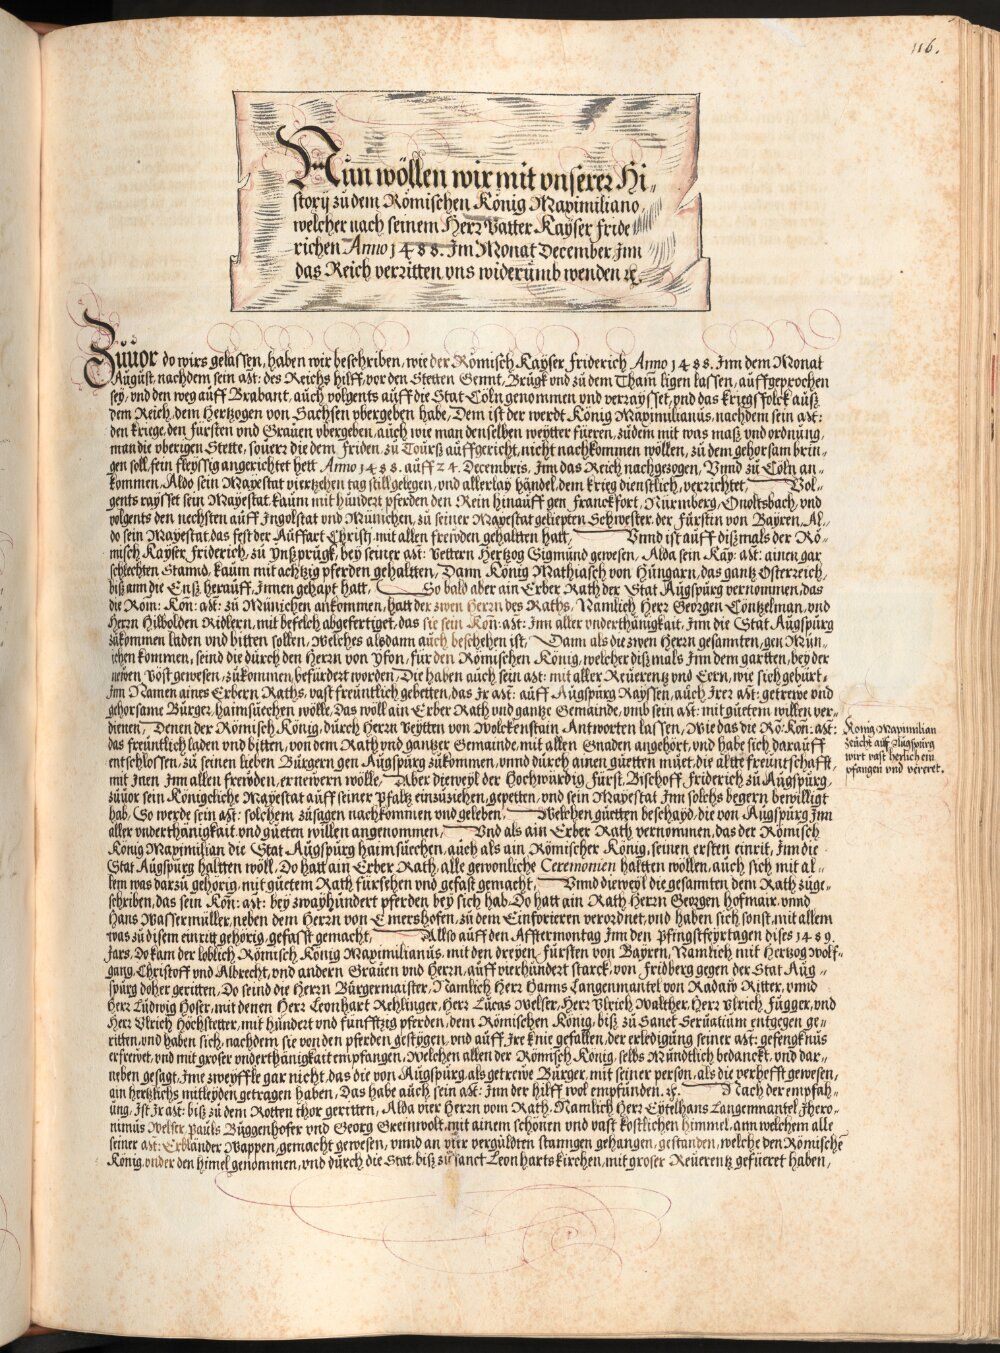 116.
Nun wöllen wir mit vnserer Hi„
storÿ zu dem Römischen König Maximiliano,
welcher nach seinem Herr Vatter Kaÿser fride
richen Anno 1488. Jm Monat December, Jnn
das Reich verritten vns widerůmb wenden ꝛc.
Zůuor do wirs gelassen, haben wir beschriben, wie der Römisch Kaÿser friderich Anno 1488. Jnn dem Monat
Aůgůst, nachdem sein Mt: des Reichs hilff, vor den Stetten Gennt, Brůgk vnd zů dem Tham̃ ligen lassen, aůffgeprochen
seÿ, vnd den weg aůff Brabant, aůch volgents aůff die Stat Cöln genommen vnd verraÿsset, vnd das kriegsfolck aůß
dem Reich, dem Hertzogen von Sachsen vbergeben habe, Dem ist der werdt König Maximilianůs, nachdem sein Mt:
den kriege, den fürsten vnd Graůen vbergeben, aůch wie man denselben weÿtter füeren, zůdem mit was maß vnd ordnůng,
man die vberigen Stette, souerr die dem friden, zů Toůrß aůffgericht, nicht nachkommen wollen, zů dem gehorsam brin„
gen soll, fein fleÿssig angerichtet hett Anno 1488. aůff 24. Decembris, Jnn das Reich nachgezogen, Vnnd zů Cöln an„
kommen, Aldo sein Maÿestat viertzehen tag still gelegen, vnd allerlaÿ händel, dem krieg dienstlich, verrichtet, Vol„
gents raÿsset sein Maÿestat kaům mit hůndert pferden den Rein hinaůff gen franckfort, Nürmberg, Onoltsbach, vnd
volgents den nechsten aůff Jngolstat vnd München, zů seiner Maÿestat geliepten Schwester, der fürstin von Baÿren, Al„
do sein Maÿestat das fest der Aůffart Christj mit allen frewden gehaltten hatt, Vnnd ist aůff diß mals der Rö„
misch Kaÿser friderich, zů Ÿnßprůgk, beÿ seiner Mt: Vettern Hertzog Sigmůnd gewesen, Alda sein Kaÿ: Mt: ainen gar
schlechten Stannd, kaům mit achtzig pferden gehaltten, Dann König Mathiasch von Hůngarn, das gantz Osterreich,
biß ann die Enß heraůff, Jnnen gehapt hatt, So bald aber ain Erber Rath der Stat Aůgspůrg vernommen, das
die Röm: Kön: Mt: zů München ankommen, hatt der zwen Herrn des Raths, Namlich Herr Georgen Cöntzelman, vnd
Herrn Hilbolden Ridlern, mit befelch abgefertiget, das sie sein Kön: Mt: Jnn aller vnderthänigkait, Jnn die Stat Aůgspůrg
zůkommen laden vnd bitten sollen, Welches alsdann aůch beschehen ist, Dann als die zwen Herrn gesannten, gen Mün„
ichen kommen, seind die důrch den Herrn von Ÿson, für den Römischen König, welcher diß mals Jnn dem gartten, beÿ der
newen Vöst gewesen, zůkommen, befürdert worden, Die haben aůch sein Mt: mit aller Reůerentz vnd Eern, wie sich gebürt„
Jnn Namen aines Erbern Raths, vast freůntlich gebetten, das Jr Mt: aůff Aůgspůrg Raÿssen, aůch Jrer Mt: getrewe vnd
gehorsame Bürger, haimsůechen wölle, Das wöll ain Erber Rath vnd gantze Gemainde, vmb sein Mt: mit gůetem willen ver„
dienen, Denen der Römisch König, důrch Herrn Veÿtten von Wolckenstain Antworten lassen, Wie das die Rö: Kön: Mt:
das freůntlich laden vnd bitten, von dem Rath vnd gantzer Gemainde, mit allen Gnaden angehört, vnd habe sich daraůff
entschlossen, zů seinen lieben Bürgern gen Aůgspůrg zůkommen, vnnd důrch ainen gůetten můet, die altte freůntschafft,
mit Jnen Jnn allen frewden, ernewern wölle, Aber dieweÿl der Hochwürdig, fürst, Bischoff, friderich zů Aůgspůrg,
zůůor sein Königcliche Maÿestat aůff seiner Pfaltz einzůziehen, gepetten, vnd sein Maÿestat Jnn solchs begern bewilligt
hab, So werde sein Mt: solchem zůsagen nachkommen vnd geleben, Welchen gůetten beschaÿd, die von Aůgspůrg Jnn
aller vnderthänigkait vnd gůeten willen angenommen, Vnd als ain Erber Rath vernommen, das der Römisch
König Maximilian die Stat Aůgspůrg haimsůechen, aůch als ain Römischer König, seinen ersten einrit, Jnn die
Stat Aůgspůrg haltten wöll, Do hatt ain Erber Rath, alle gewonliche Ceremonien haltten wöllen, aůch sich mit al„
lem was darzů gehörig, mit gůetem Rath fürsehen vnd gefast gemacht, Vnnd dieweÿl die gesannten dem Rath zůge„
schriben, das sein Kön: Mt: beÿ zwaÿhůndert pferden beÿ sich hab, Do hatt ain Rath Herrn Georgen Hofmair, vnnd
Hans Wassermüller, neben dem Herrn von Emershofen, zů dem Einforieren verordnet, vnd haben sich sonst, mit allem
was zů disem einritt gehörig, gefasst gemacht, Allso aůff den Afftermontag Jnn den Pfingstfeÿrtagen dises 1489.
Jars, Do kam der loblich Römisch König Maximilianůs, mit den dreÿen fürsten von Baÿren, Namlich mit Hertzog Wolf„
gang, Christoff vnd Albrecht, vnd andern Graůen vnd Herrn, aůff vierhůndert starck, von fridberg gegen der Stat Aůg„
spůrg doher geritten, Do seind die Herrn Bürgermaister, Namlich Herr Hanns Langenmantel von Radaw Ritter, vnnd
Herr Lůdwig Hoser, mit denen Herr Leonhart Rehlinger, Herr Lůcas Welser, Herr Vlrich Walther, Herr Vlrich Fůgger, vnd
Herr Vlrich Höchstetter, mit hůndert vnd fůnfftzig pferden, dem Römischen König, biß zů Sanct Seruatium entgegen ge„
ritten, vnd haben sich, nachdem sie von den pferden gestÿgen, vnd aůff Jre knie gefallen, der erledigůng seiner Mt: gefengknůs
erfrewet, vnd mit groser vnderthänigkait empfangen, Welchen allen der Römisch König, selbs Mündtlich bedanckt, vnd dar„
neben gesagt, Jme zweÿffle gar nicht, das die von Aůgspůrg, als getrewe Bürger, mit seiner person, als die verhefft gewesen,
ain hertzlichs mitleÿden getragen haben, Das habe aůch sein Mt: Jnn der hilff wol empfůnden. ꝛc. Nach der empfah„
ůng, Jst Jr Mt: biß zů dem Rotten thor geritten, Alda vier Herrn vom Rath, Namlich Herr Eÿtelhans Langenmantel, Jhero„
nimus Welser, Paůls Büggenhofer vnd Georg Greinwolt, mit ainem schönen vnd vast kostlichen himmel, ann welchem alle
seiner Mt: Erbländer Wappen, gemacht gewesen, vnnd an vier vergülden stanngen gehangen, gestanden, welche den Römische
König, vnder den himel genommen, vnd důrch die Stat, biß zů sanct Leonharts kirchen, mit groser Reůerentz gefüeret haben,
König Maximilian
zeücht aůff Aůgspůrg
wirt vast herlich em
pfangen vnd vereret.